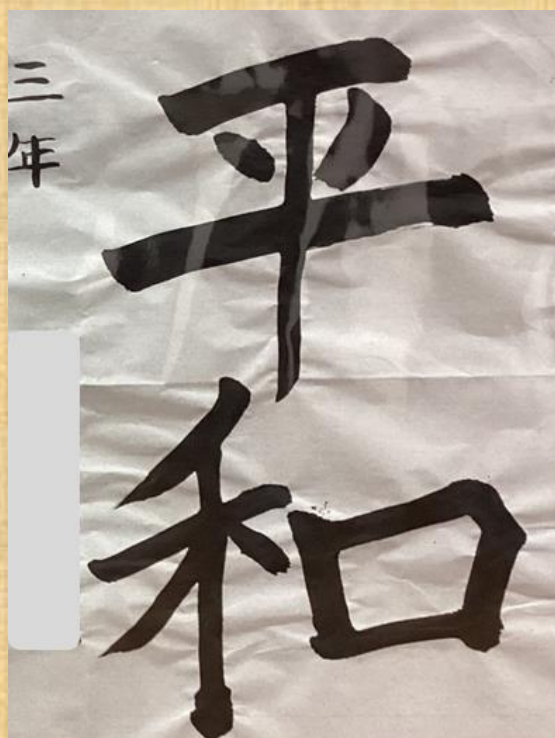 平和
三年